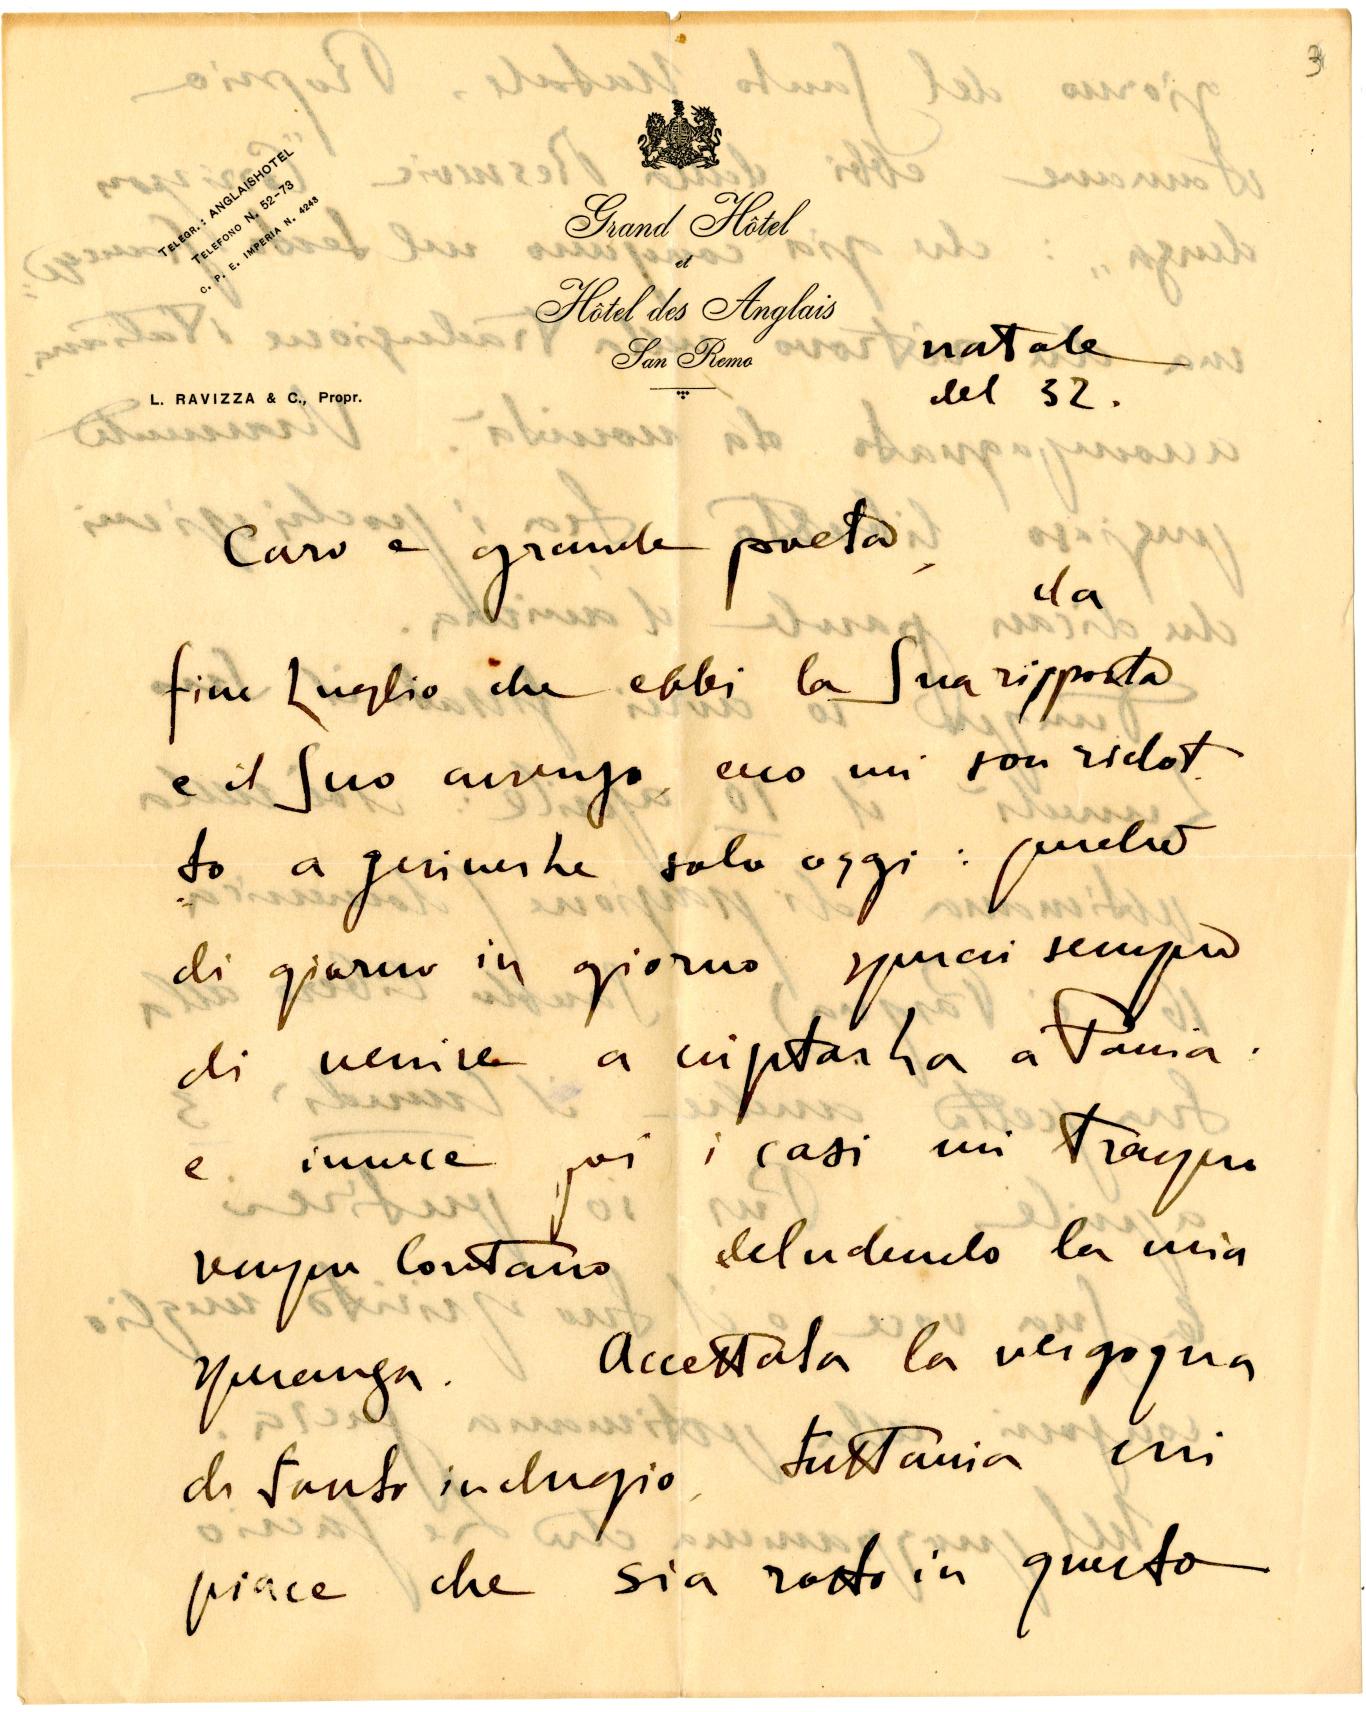 3
TELEGR.: ANGLAISHOTEL
TELEFONO N. 52-73
C. P. E. IMPERIA N. 4243
Grand Hôtel
et
Hôtel des Anglais
San Remo
L. RAVIZZA & C., Propr.
natale
del 32.
Caro e grande poeta,
da
fine Luglio che ebbi la Sua risposta
e il Suo assenso, ecco mi son ridot
to a scriverle solo oggi : perchè
di giorno in giorno sperai sempre
di venire a ascoltarla a Pavia.
e invece poi i casi mi trasser
sempre lontano deludendo la mia
speranza. Accettata la vergogna
di tanto indugio, tuttavia mi
piace che sia rotto in questo